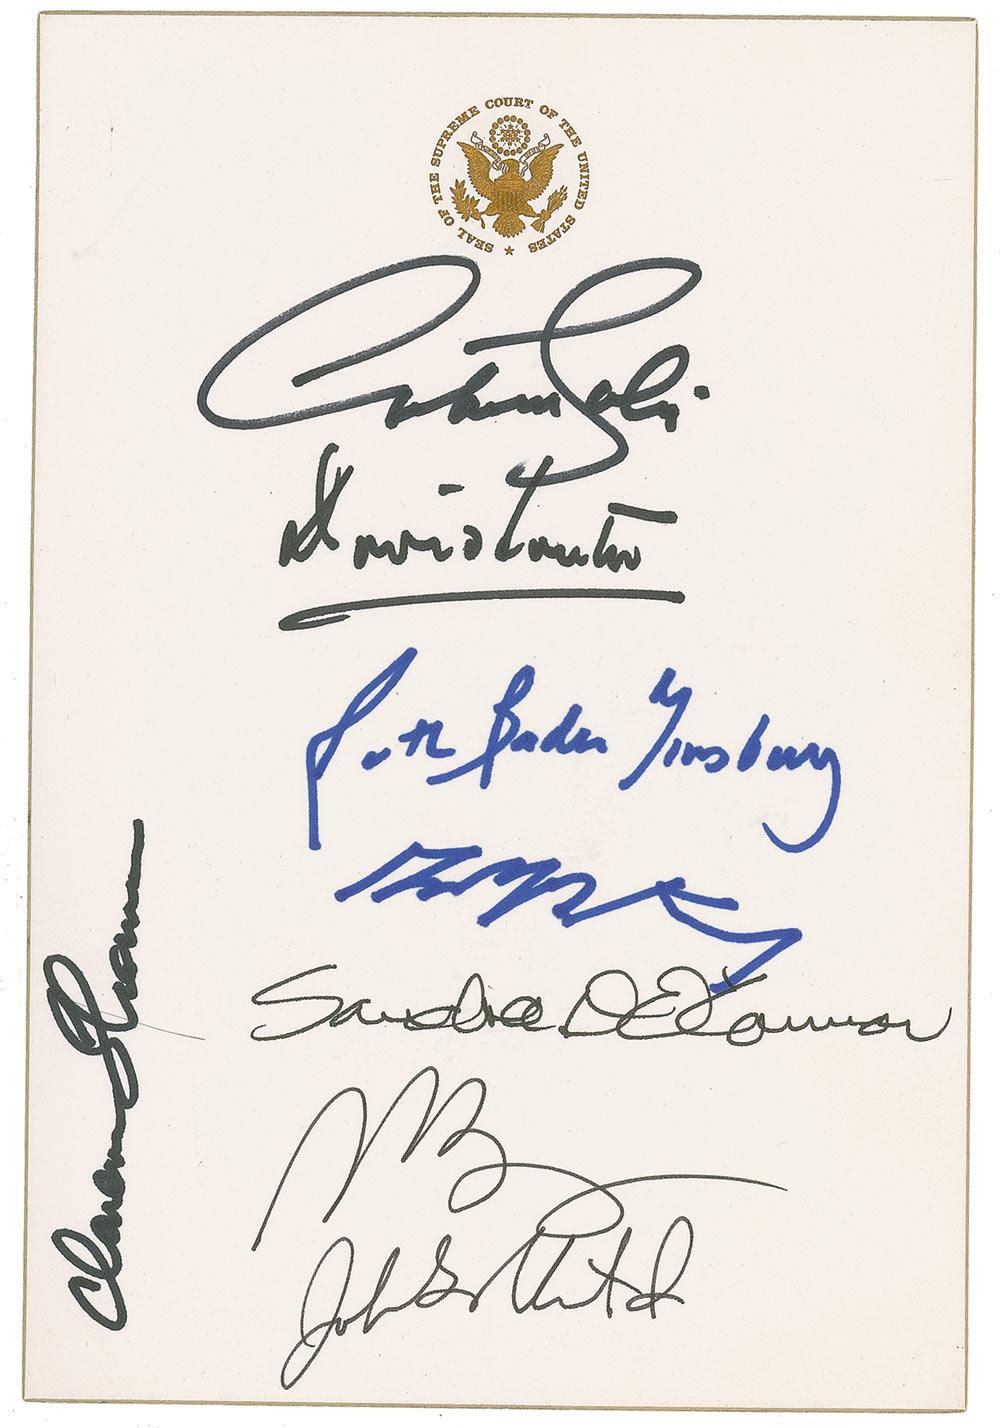 SEAL OF THE SUPREME COURT OF THE UNITED STATES
Antonin Scalia
David Souter
Ruth Bader Ginsburg
Sandra D O'Connor
Clarence Thomas